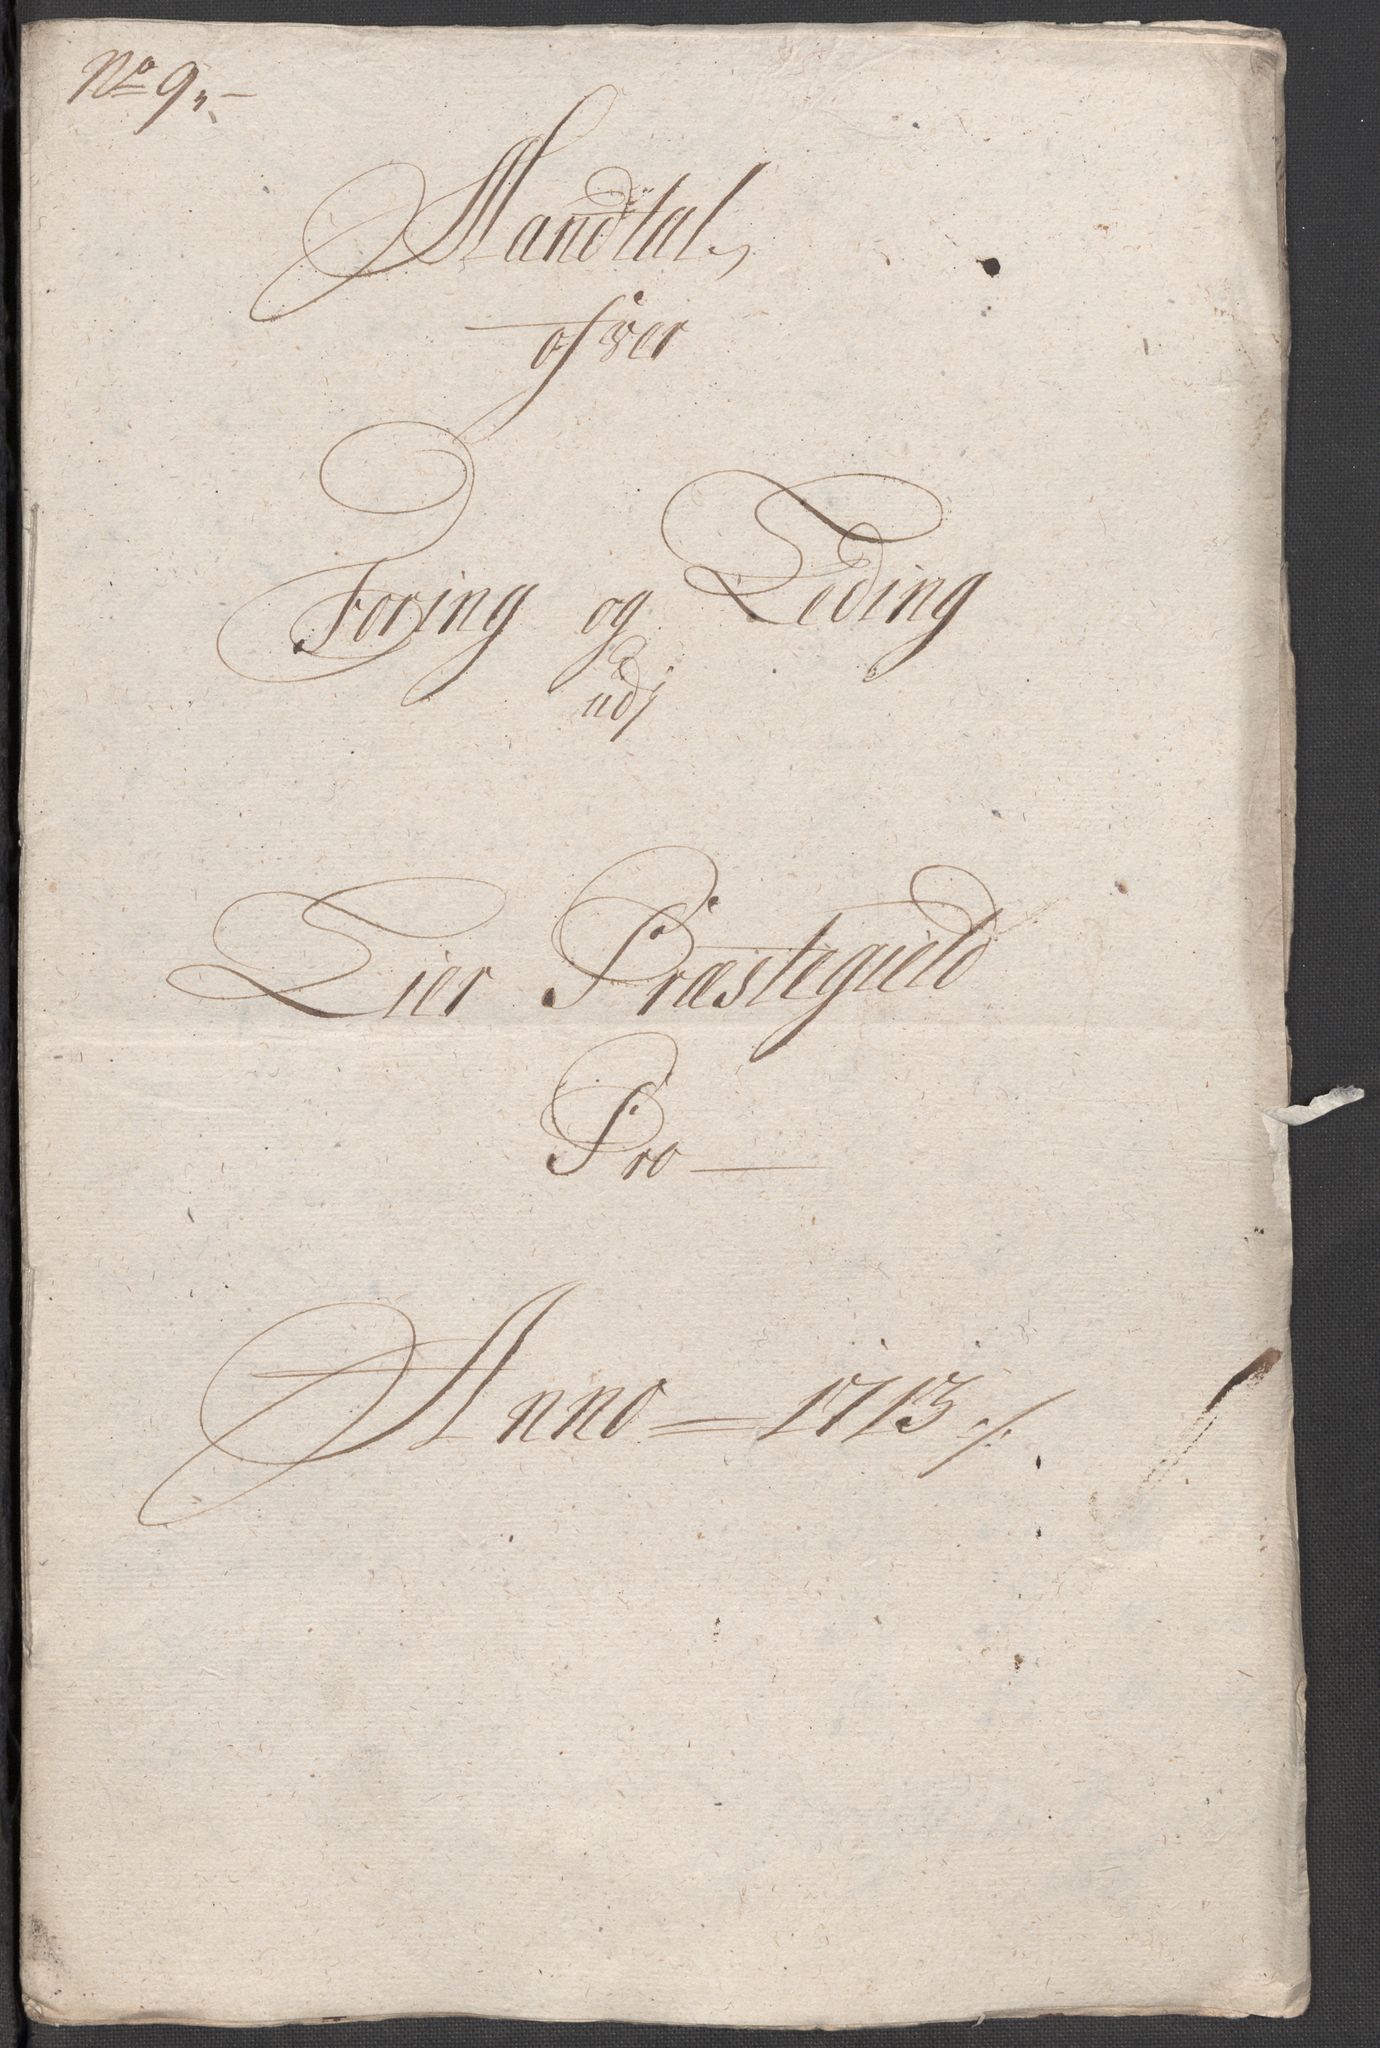 No 9,,-
Mandtal,
ofver
Foring og Leding
udj
Lier Præstegield
Pro —
Anno = 1713 ./.